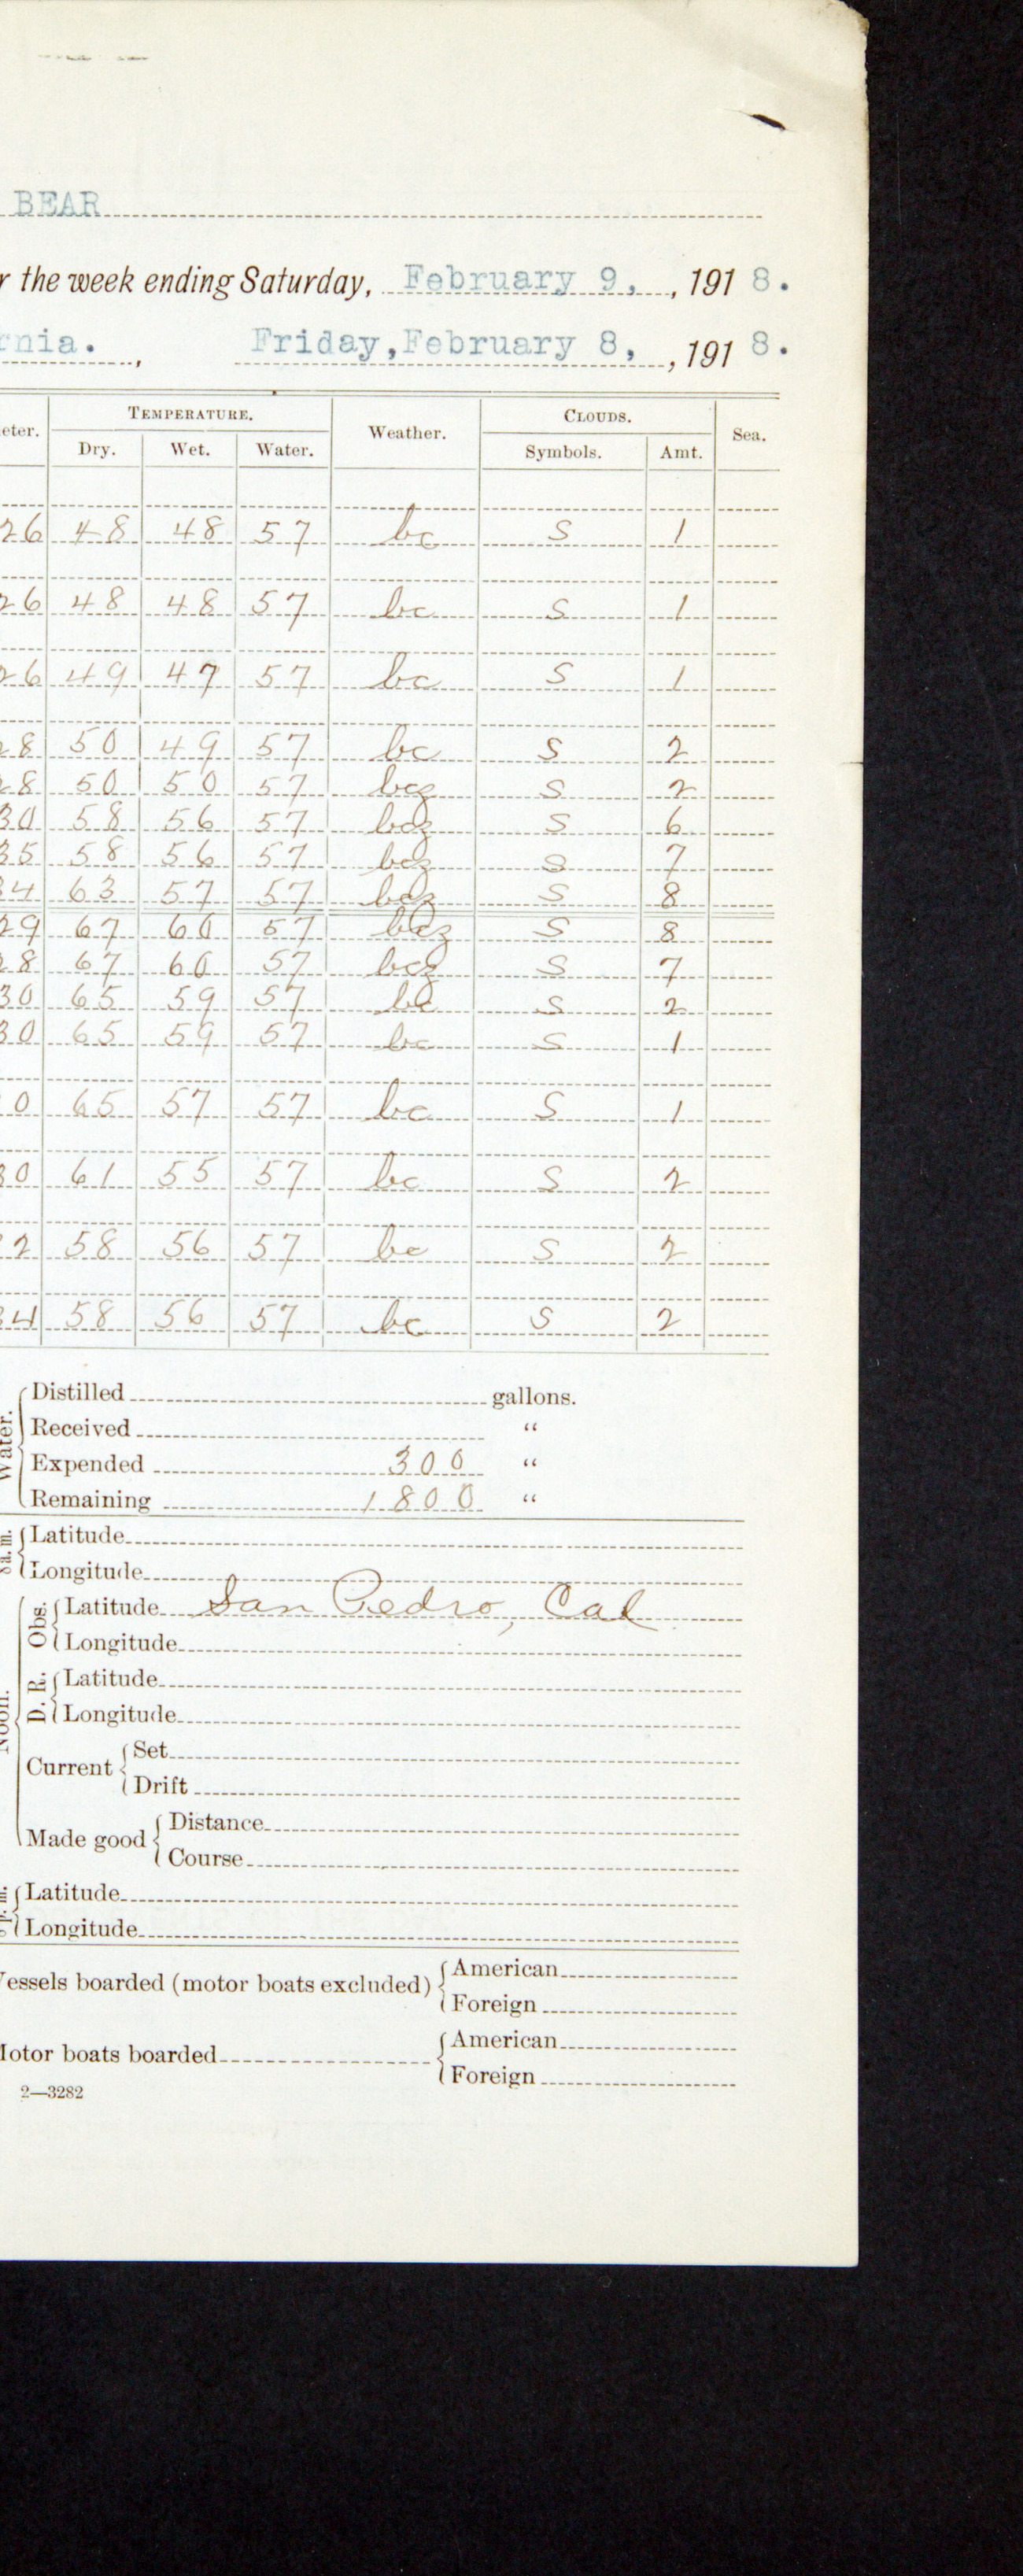 BEAR
r the week ending Saturday, February 9, , 191 8.
rnia. , Friday, February 8, , 191 8.
eter. TEMPERATURE. Weather. CLOUDS. Sea.
Dry. Wet. Water. Symbols. Amt.
26 48 48 57 bc S 1
26 48 48 57 bc S 1
26 49 47 57 bc S 1
28 50 49 57 bc S 2
28 50 50 57 bcz S 2
30 58 56 57 bcz S 6
35 58 56 57 bcz S 7
34 63 57 57 bcz S 8
29 67 60 57 bcz S 8
28 67 60 57 bcz S 7
30 65 59 57 bc S 2
30 65 59 57 bc S 1
0 65 57 57 bc S 1
30 61 55 57 bc S 2
2 58 56 57 bc S 2
34 58 56 57 bc S 2
Water.
Distilled gallons.
Received “
Expended 300 “
Remaining 1800 “
8 a.m.
Latitude
Longitude
Noon.
Obs. Latitude San Pedro, Cal
Longitude
D. R. Latitude
Longitude
Current Set
Drift
Made good Distance
Course
Latitude
Longitude
essels boarded (motor boats excluded) American
Foreign
otor boats boarded American
Foreign
2—3282